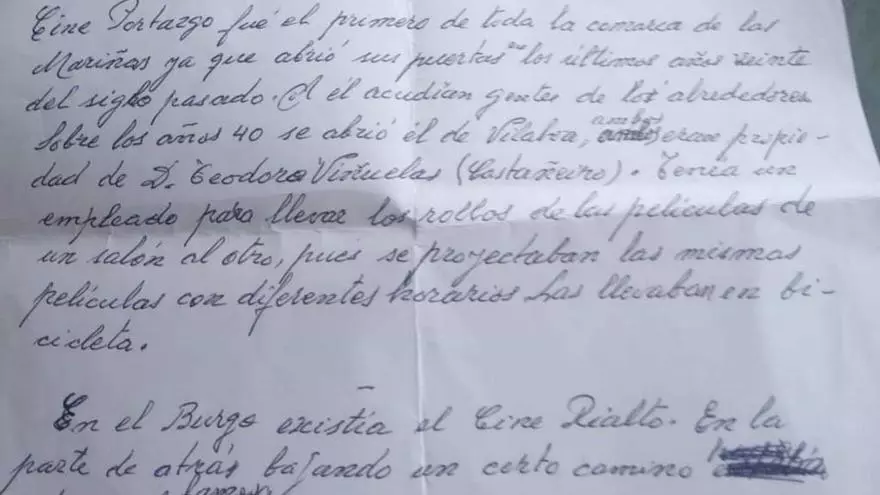 Cine Portazgo fué el primero de toda la comarca de las
Mariñas ya que abrió sus puertas en los últimos años veinte
del siglo pasado. A él acudían gentes de los alrededores
Sobre los años 40 se abrió el de Vilaboa, ambos eran propie-
dad de D. Teodoro Viñuelas (Castañeiro). Tenía un
empleado para llevar los rollos de las películas de
un salón al otro, pues se proyectaban las mismas
películas con diferentes horarios. Las llevaban en bi-
cicleta.
En el Burgo existía el Cine Rialto. En la
parte de atrás bajando un corto camino